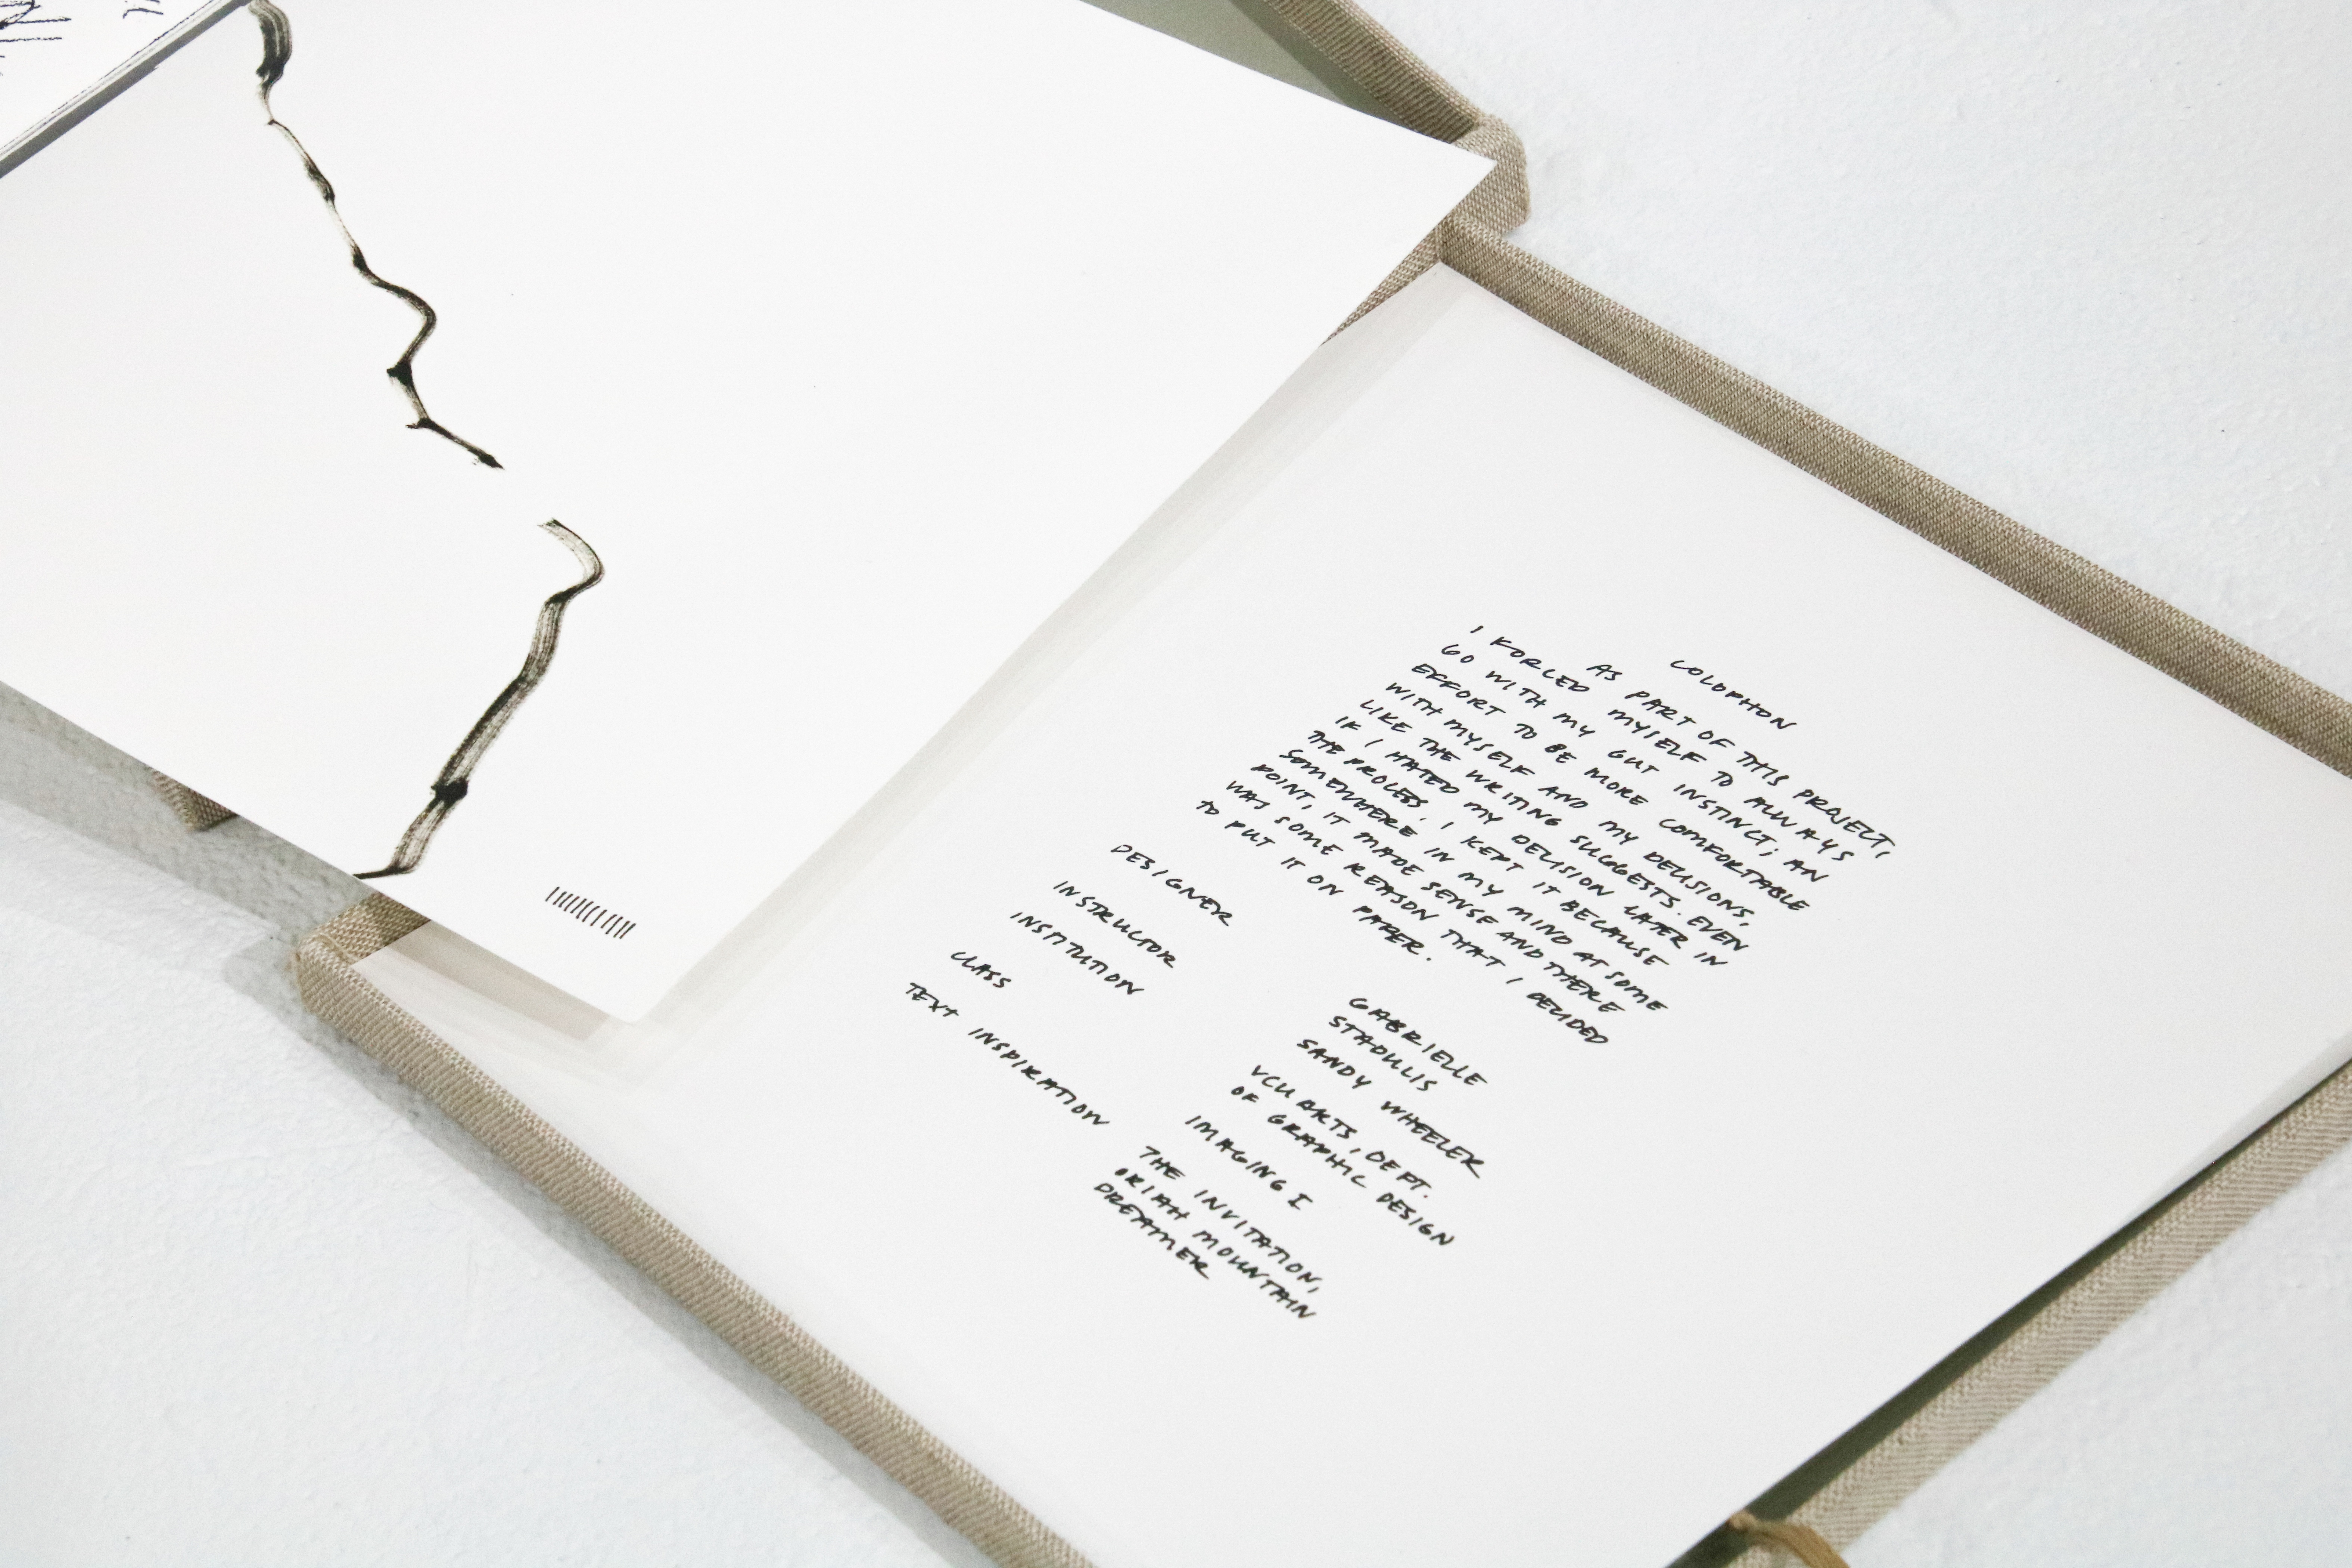 COLOPHON
AS PART OF THIS PROJECT,
I FORCED MYSELF TO ALWAYS
GO WITH MY GUT INSTINCT; AN
EFFORT TO BE MORE COMFORTABLE
WITH MYSELF AND MY DECISIONS,
LIKE THE WRITING SUGGESTS. EVEN
IF I HATED MY DECISION LATER IN
THE PROCESS, I KEPT IT BECAUSE
SOMEWHERE IN MY MIND AT SOME
POINT, IT MADE SENSE AND THERE
WAS SOME REASON THAT I DECIDED
TO PUT IT ON PAPER.
DESIGNER GABRIELLE
STADULIS
INSTRUCTOR SANDY WHEELER
INSTITUTION VCU ARTS, DEPT.
OF GRAPHIC DESIGN
CLASS IMAGING I
TEXT INSPIRATION THE INVITATION,
ORIAH MOUNTAIN
DREAMER